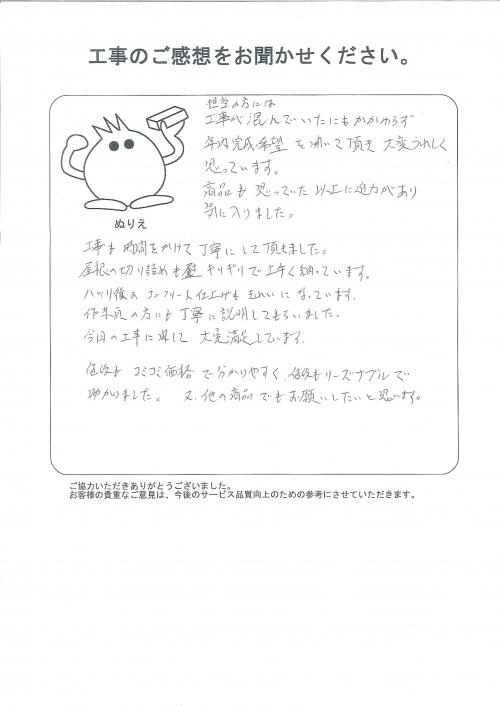 工事のご感想をお聞かせください。
担当の方には
工事が混んでいたにもかかわらず
年内完成希望を聞いて頂き 大変うれしく
思っています。
商品も思っていた以上に迫力があり
気に入りました。
ぬりえ
工事も時間をかけて丁寧にして頂きました。
屋根の切り詰めも壁ギリギリで上手く納っています。
ハツリ後のコンクリート仕上げもきれいになっています。
作業員の方にも丁寧に説明してもらいました。
今回の工事に関して 大変満足しています。
値段もコミコミ価格で分かりやすく、値段もリーズナブルで
助かりました。 又、他の商品でもお願いしたいと思います。
ご協力いただきありがとうございました。
お客様の貴重なご意見は、今後のサービス品質向上のための参考にさせていただきます。